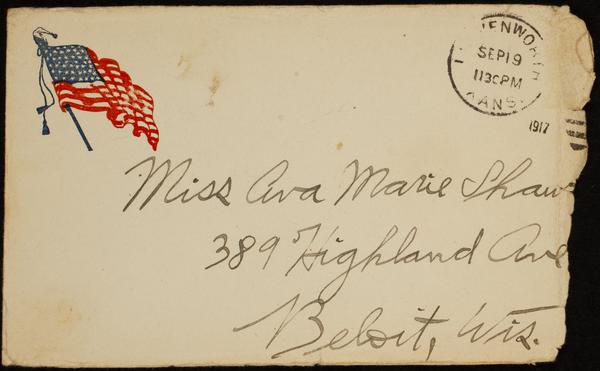 ENWORTH
SEP 19
1130 PM
KANS.
1917
Miss Ava Marie Shaw
389 Highland Ave
Beloit, Wis.